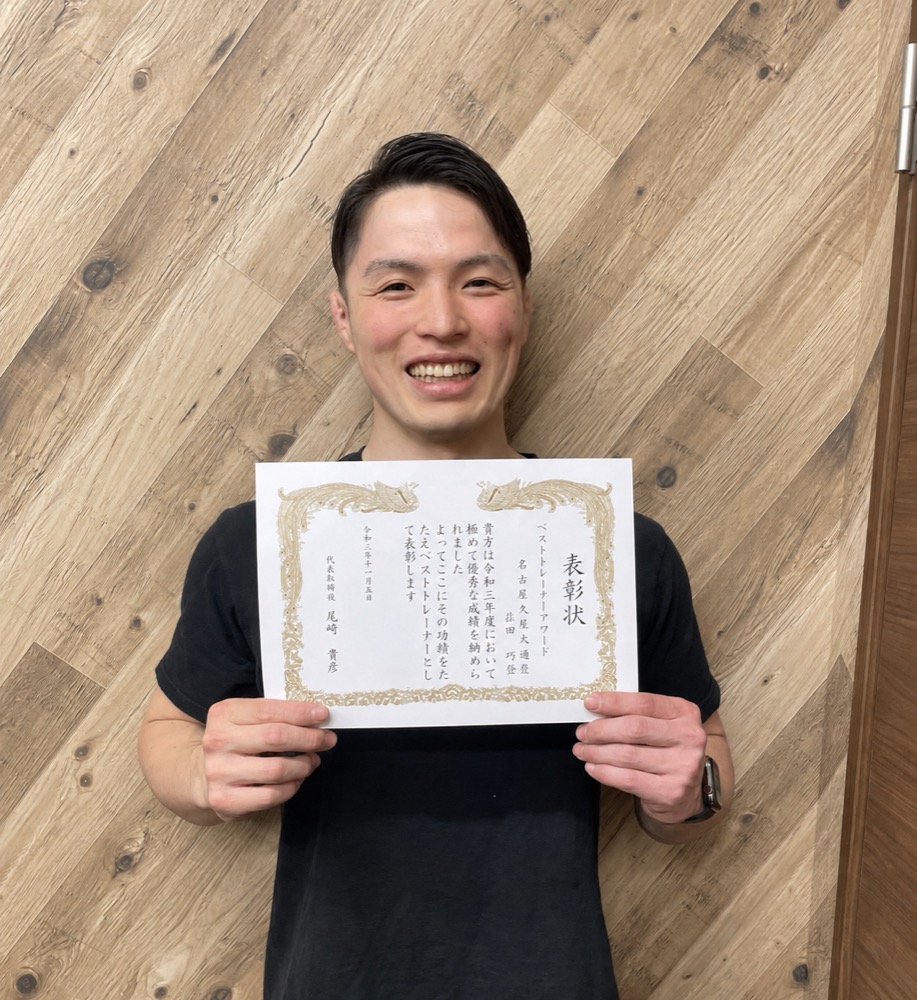 表彰状
ベストトレーナーアワード
名古屋久屋大通
田 巧
貴方は令和三年度において
極めて優秀な成績を納めら
れました
よってここにその功績をた
たえベストトレーナーとし
て表彰します
令和三年十一月五日
代表取締役 尾崎 貴彦